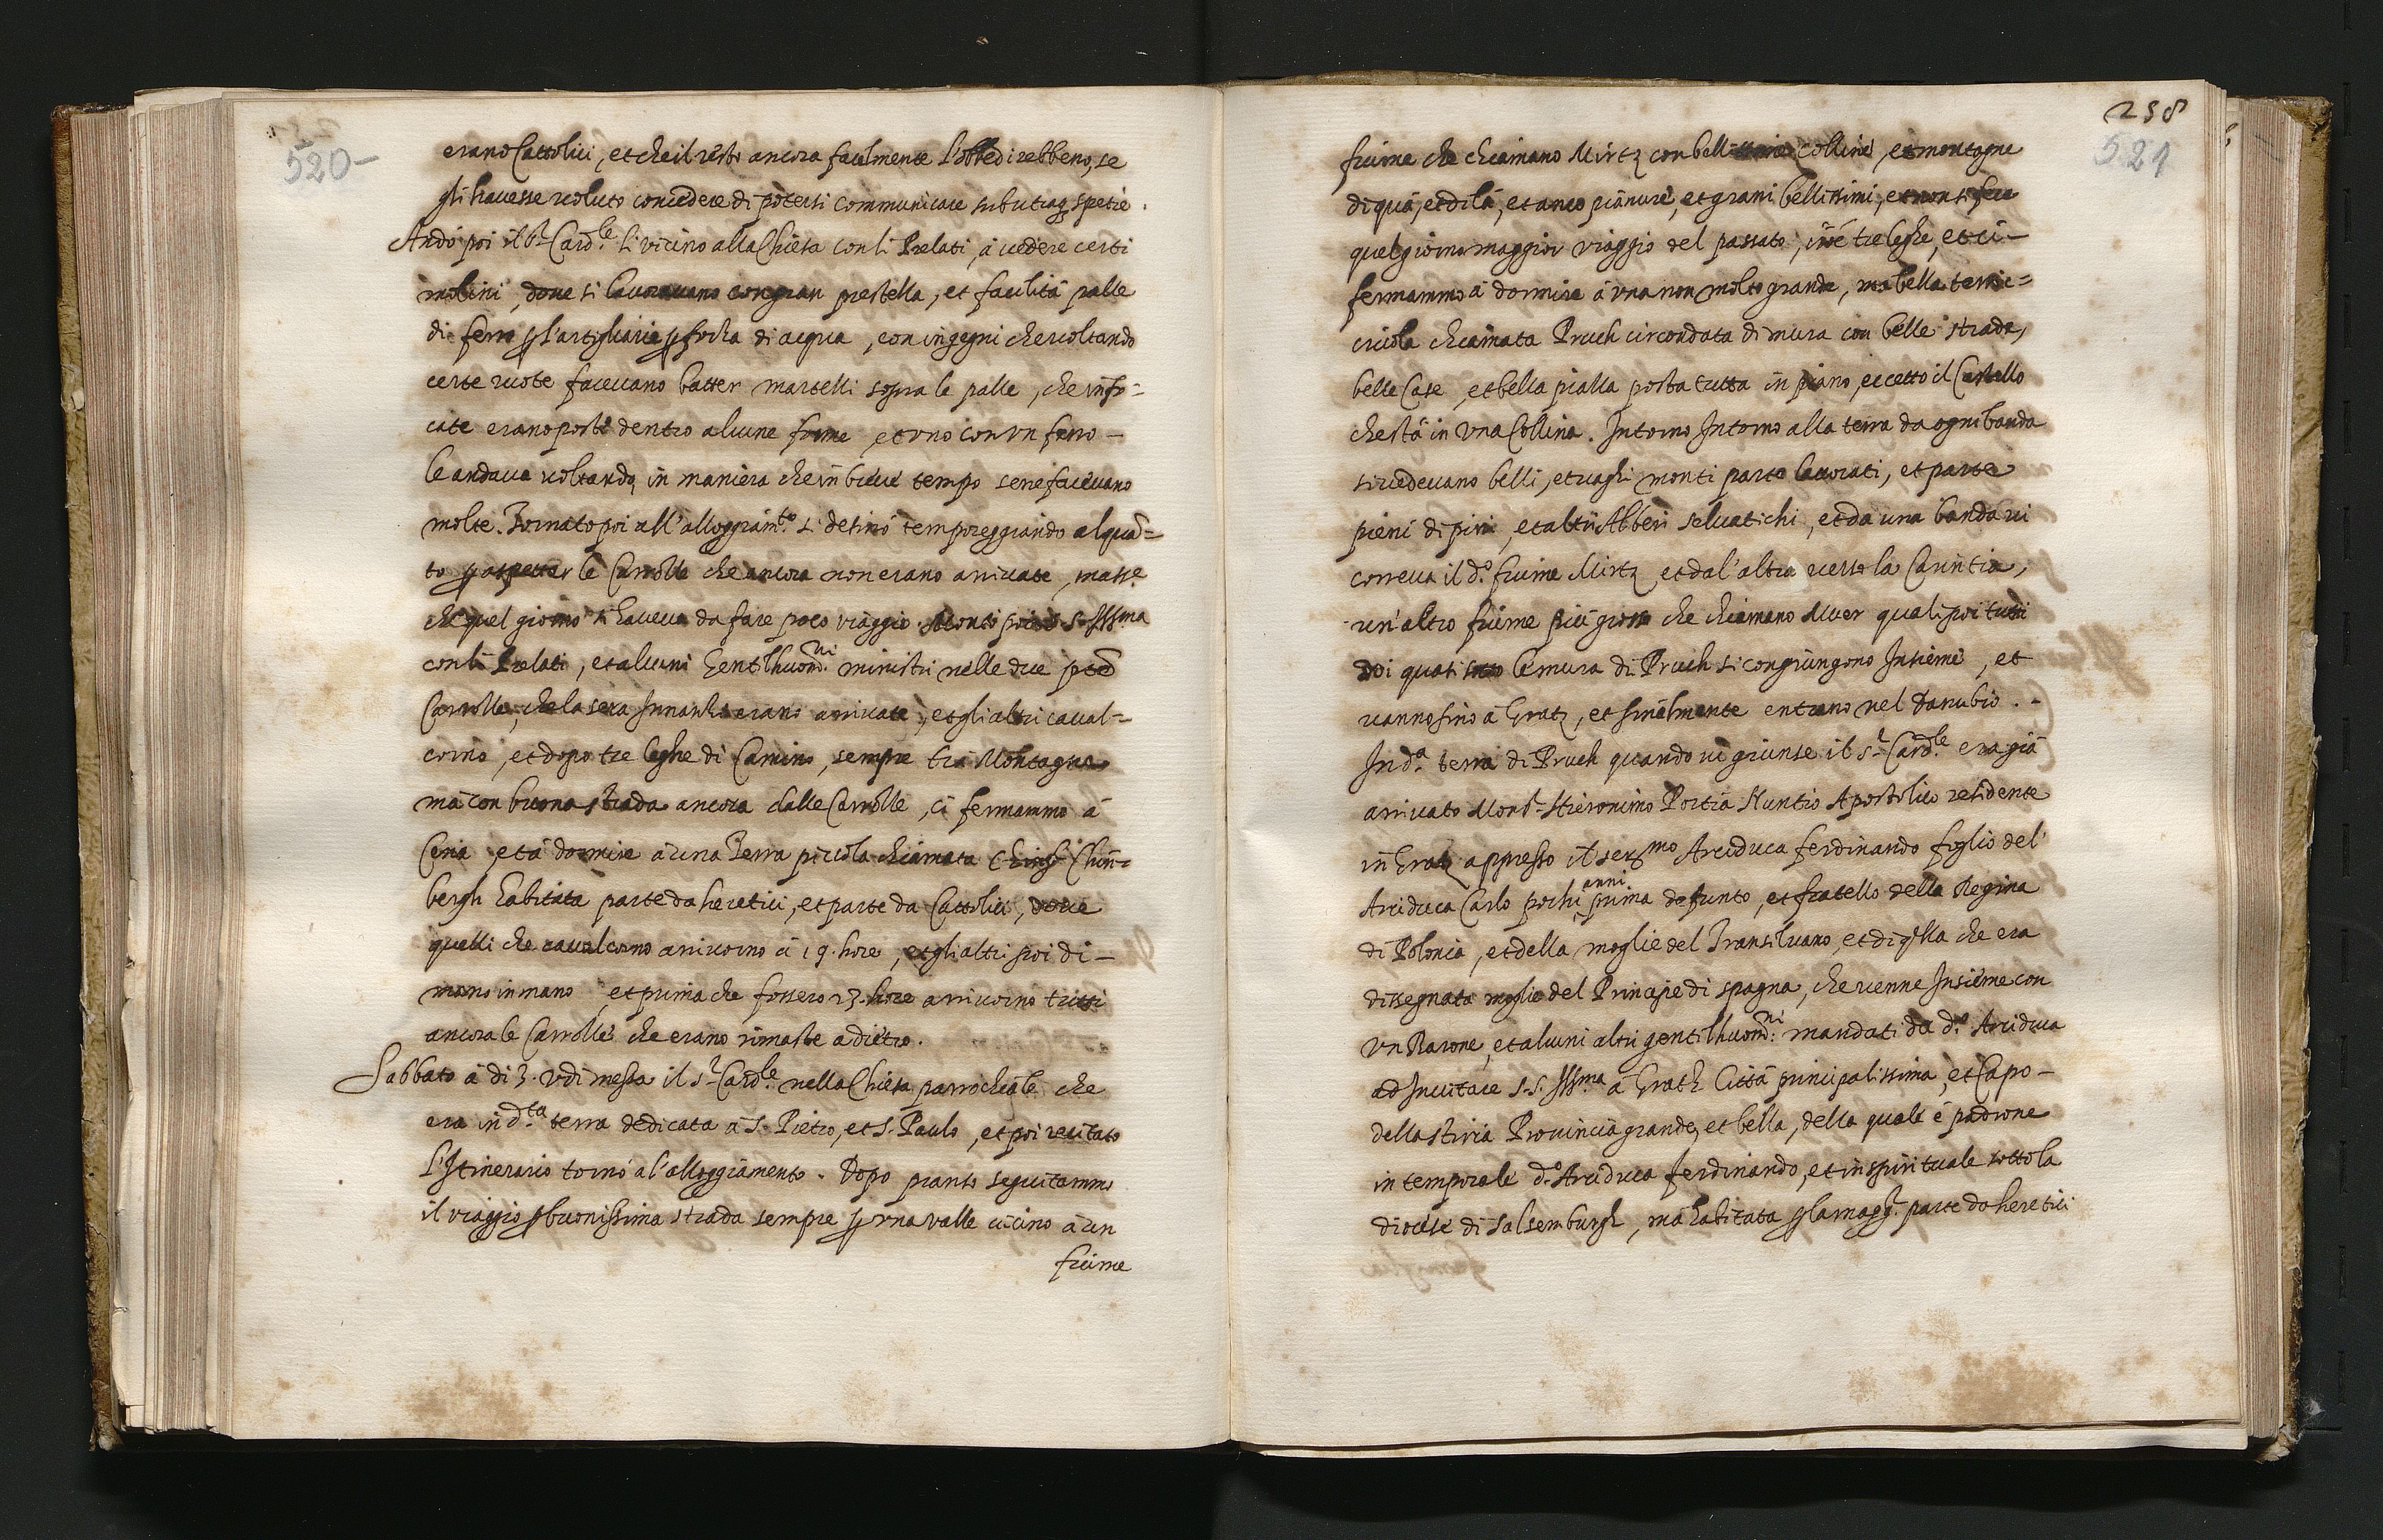 520-
erano Cattolici, et che il resto ancora facilmente l'obbedirebbeno, se
gli havesse voluto concedere di potersi communicare sub utraq. spetie.
Andò poi il Sr. Card.le lì vicino alla Chiesa con li Prelati, à vedere certi
molini, dove si lavoravano con gran prestezza, et facilità palle
di ferro p l'artigliarie p forza di acqua, con ingegni che voltando
certe ruote facevano batter martelli sopra le palle, che info=
cate erano poste dentro alcune forme et uno con un ferro -
le andava voltando, in maniera che in breve tempo se ne facevano
molte. Tornato poi all'alloggiam.to si desinò temporeggiando alquã=
to p aspettar le Carrozze che ancora non erano arrivate, mass.e
che quel giorno si haveva da fare poco viaggio. Montò poi S.S. Ill.ma
con li Prelati, et alcuni Gentilhuom.ni ministri nelle due pte
Carrozze, che la sera Innanzi erano arrivate, et gli altri caval=
corno, et dopo tre leghe di Camino, sempre trà Montagne
mà con buona strada ancora dalle Carrozze, ci fermammo à
Cena, et à dormire à una Terra piccola chiamata Chinf Chin=
bergh habitata parte da heretici, et parte da Cattolici, dove
quelli che cavalcorno arrivorno à 19. hore, et gli altri poi di -
mano in mano et prima che fossero 23. hore arrivorno tutti
ancora le Carrozze che erano rimaste a dietro.
Sabbato à di 3. udì messa il Sr. Card.le nella Chiesa parrochiale che
era in d.ta terra dedicata à S. Pietro, et S. Paulo, et poi recitato
l'Itinerario tornò a l'alloggiamento. Dopo pranso seguitammo
il viaggio p buonissima strada sempre p una valle vicino à un
fiume
258
521
fiume che chiamano Mirtz con bellissime colline, et montagne
di quà, et di là, et anco pianure, et grani bellissimi, et non si fece
quel giorno maggior viaggio del passato, cioè tre leghe, et ci -
fermammo à dormire à una non molto grande, mà bella terric=
ciuola chiamata Pruch circondata di mura con belle strade,
belle Case, et bella piazza posta tutta in piano, eccetto il Castello
che stà in una Collina. Intorno Intorno alla terra da ogni banda
si vedevano belli, et vaghi monti parte lavorati, et parte
pieni di pini, et altri Alberi selvatichi, et da una banda vi
correva il d.o fiume Mirtz, et da l'altra verso la Carintia,
un'altro fiume più grosso che chiamano Muer quali poi tutti
doi quasi sotto le mura di Pruch si congiungono Insieme, et
vanno sino à Gratz, et finalmente entrano nel Danubio. -
In d.a terra di Pruch quando vi giunse il Sr. Card.le era già
arrivato Mons.r Hieronimo Portia Nuntio Apostolico residente
in Gratz appresso il ser.mo Arciduca ferdinando figlio del'
Arciduca Carlo pochi anni prima defunto, et fratello della Regina
di Polonia, et della moglie del Transilvano, et di qlla che era
dissegnata moglie del Principe di spagna, che venne Insieme con
un Barone, et alcuni altri gentilhuom.ni mandati da d.o Arciduca
ad Invitare S.S. Ill.ma à Gratz Città principalissima, et Capo -
della stiria Provincia grande, et bella, della quale è padrone
in temporale d.o Arciduca ferdinando, et in spirituale sotto la
diocese di Salsemburgh, mà habitata p la magg.r parte da heretici